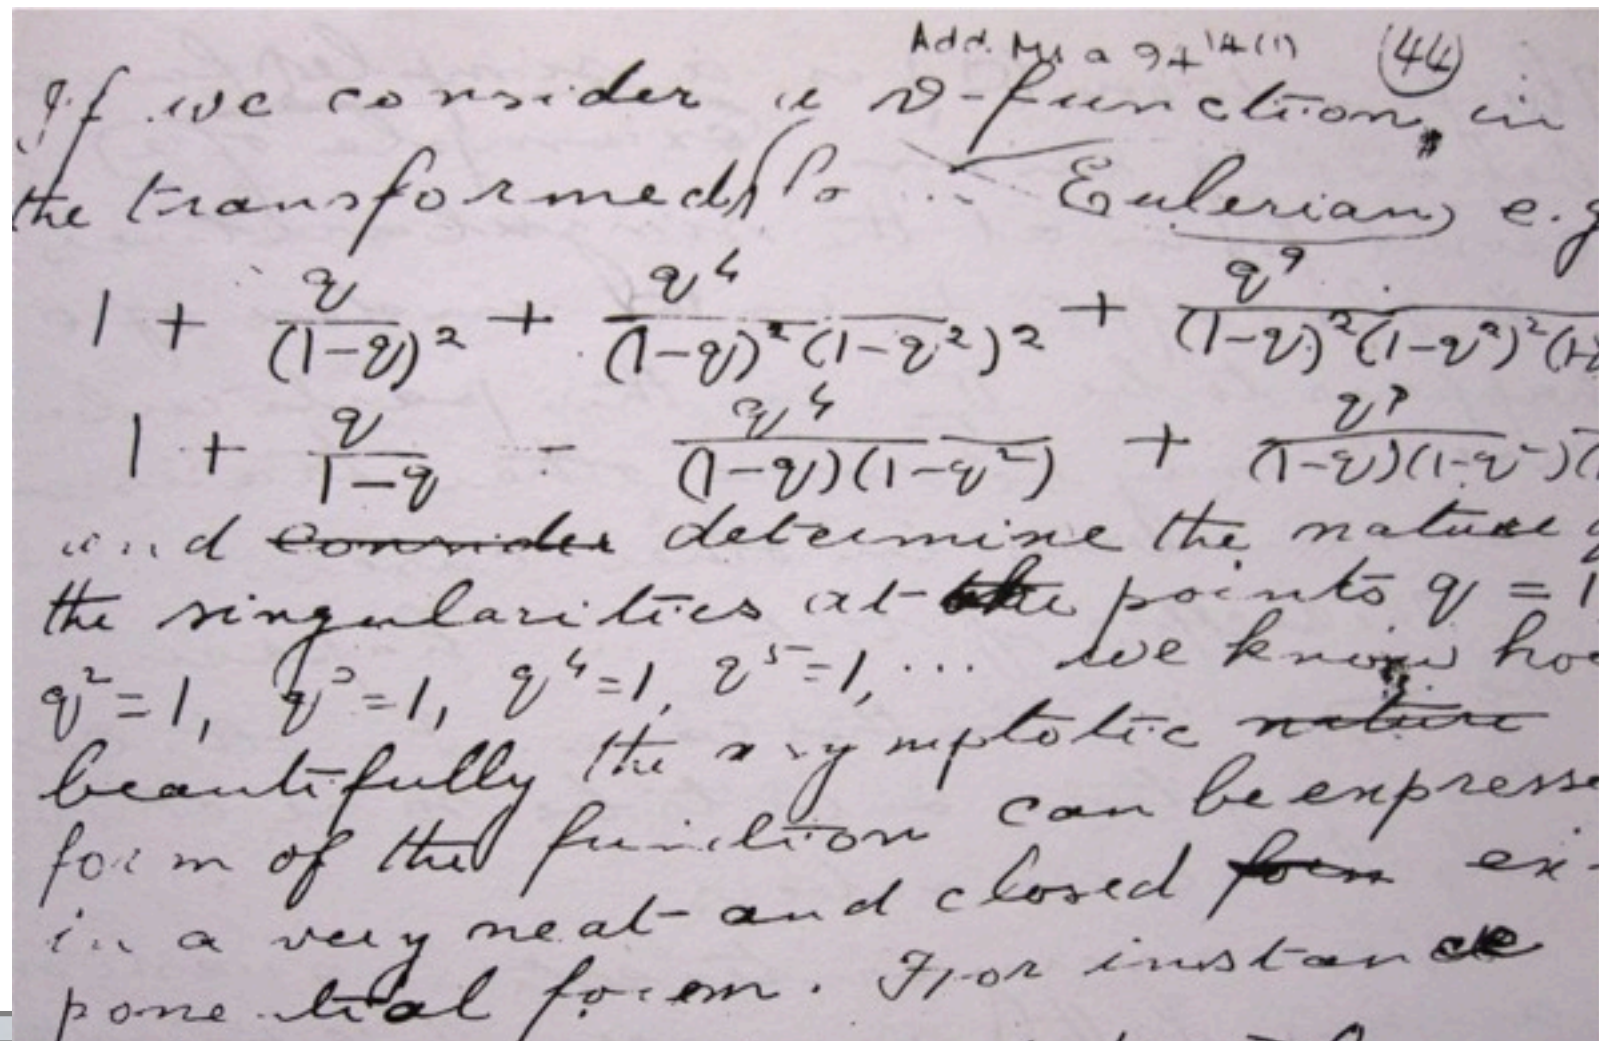 Add. Ms a 94 14(1) (44)
If we consider a ϑ-function in
the transformed Eulerian e.g
1 + q/(1-q)² + q⁴/(1-q)²(1-q²)² + q⁹/(1-q)²(1-q²)²(1-
1 + q/1-q - q⁴/(1-q)(1-q²) + q⁹/(1-q)(1-q²)(
and consider determine the nature
the singularities at the points q = 1
q² = 1, q³ = 1, q⁴ = 1, q⁵ = 1, ... we know ho
beautifully the asymptotic nature
form of the function can be expresse
in a very neat and closed form ex-
ponential form. For instance